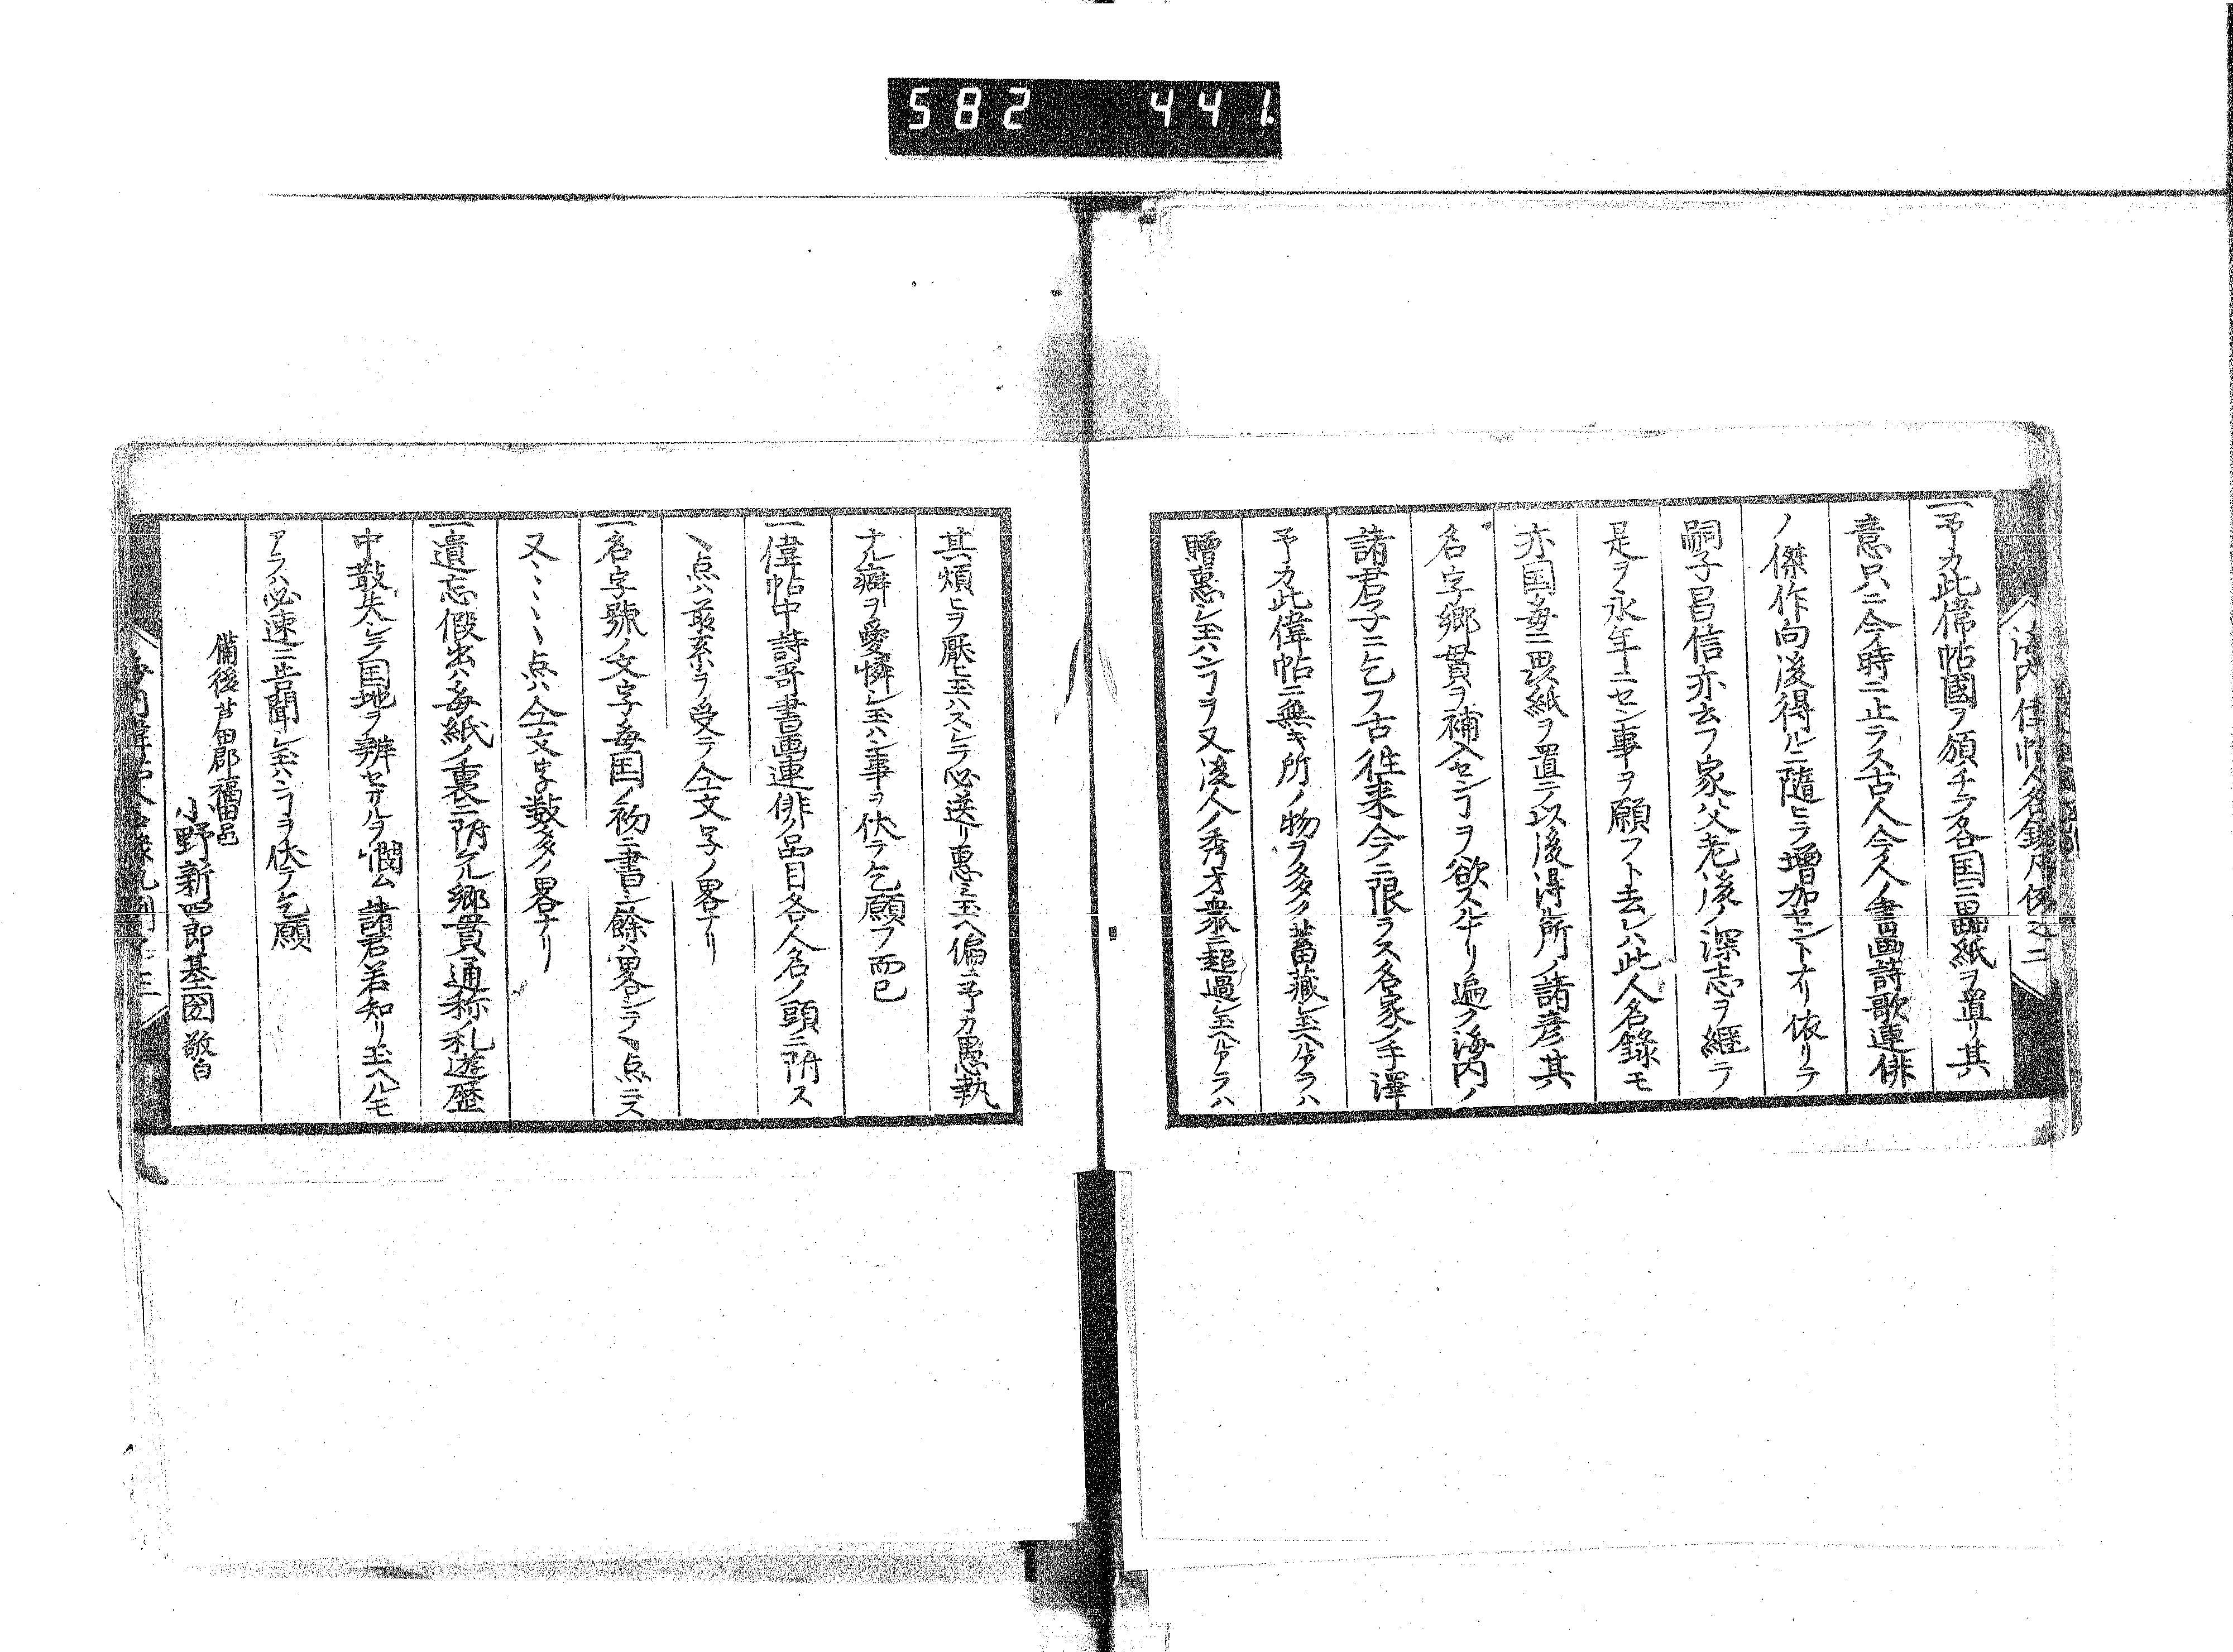 582 441
海内偉帖人名録凡例之二
一予カ此偉帖國ヲ頒チテ各国ニ畾紙ヲ置リ其
意只ニ今時ニ止ラス古人今人ノ書画詩歌連俳
ノ傑作向後得ルニ隨ヒテ增加センナリ依リテ
嗣子昌信亦云フ家父老後ノ深志ヲ継テ
是ヲ永年ニセン事ヲ願フト去レハ此人名錄モ
亦国每ニ畾紙ヲ置テ以後得ル所ノ諸彦其
名字鄉貫ヲ補入センヿヲ欲スレハナリ遍ク海内ノ
諸君子ニ乞フ古往来今ニ限ラス名家ノ手澤
予カ此偉帖ニ無キ所ノ物ヲ多ク蓄藏シ玉ヘルアラハ
贈惠シ玉ハンヿヲ又後人ノ秀才衆ニ超過シ玉ヘルアラハ
其煩ヒヲ厭ヒ玉ハスシテ必送リ惠ミ玉ヘ偏ニ予カ愚執
ナル癖ヲ愛憐シ玉ハン事ヲ伏テ乞願フ而已
一偉帖中詩哥書画連俳ノ品目各人名ノ頭ニ附ス
ヽ点ハ最系ヲ受テ仝文字ノ畧ナリ
一名字號ノ文字每国ノ初ニ書シ餘ハ畧シテヽ点ニス
又ヽヽヽヽ点ハ仝文字数多ノ畧ナリ
一遺忘假出ハ每紙ノ裏ニ附ス凡鄉貫通称ノ札遊歴
中散失シテ国地ヲ辨セサルヲ憫ム諸君若知リ玉ヘルモ
アラハ必速ニ告聞シ玉ハンヿヲ伏テ乞願
備後芦田郡福田邑
小野新四郎基圀敬白